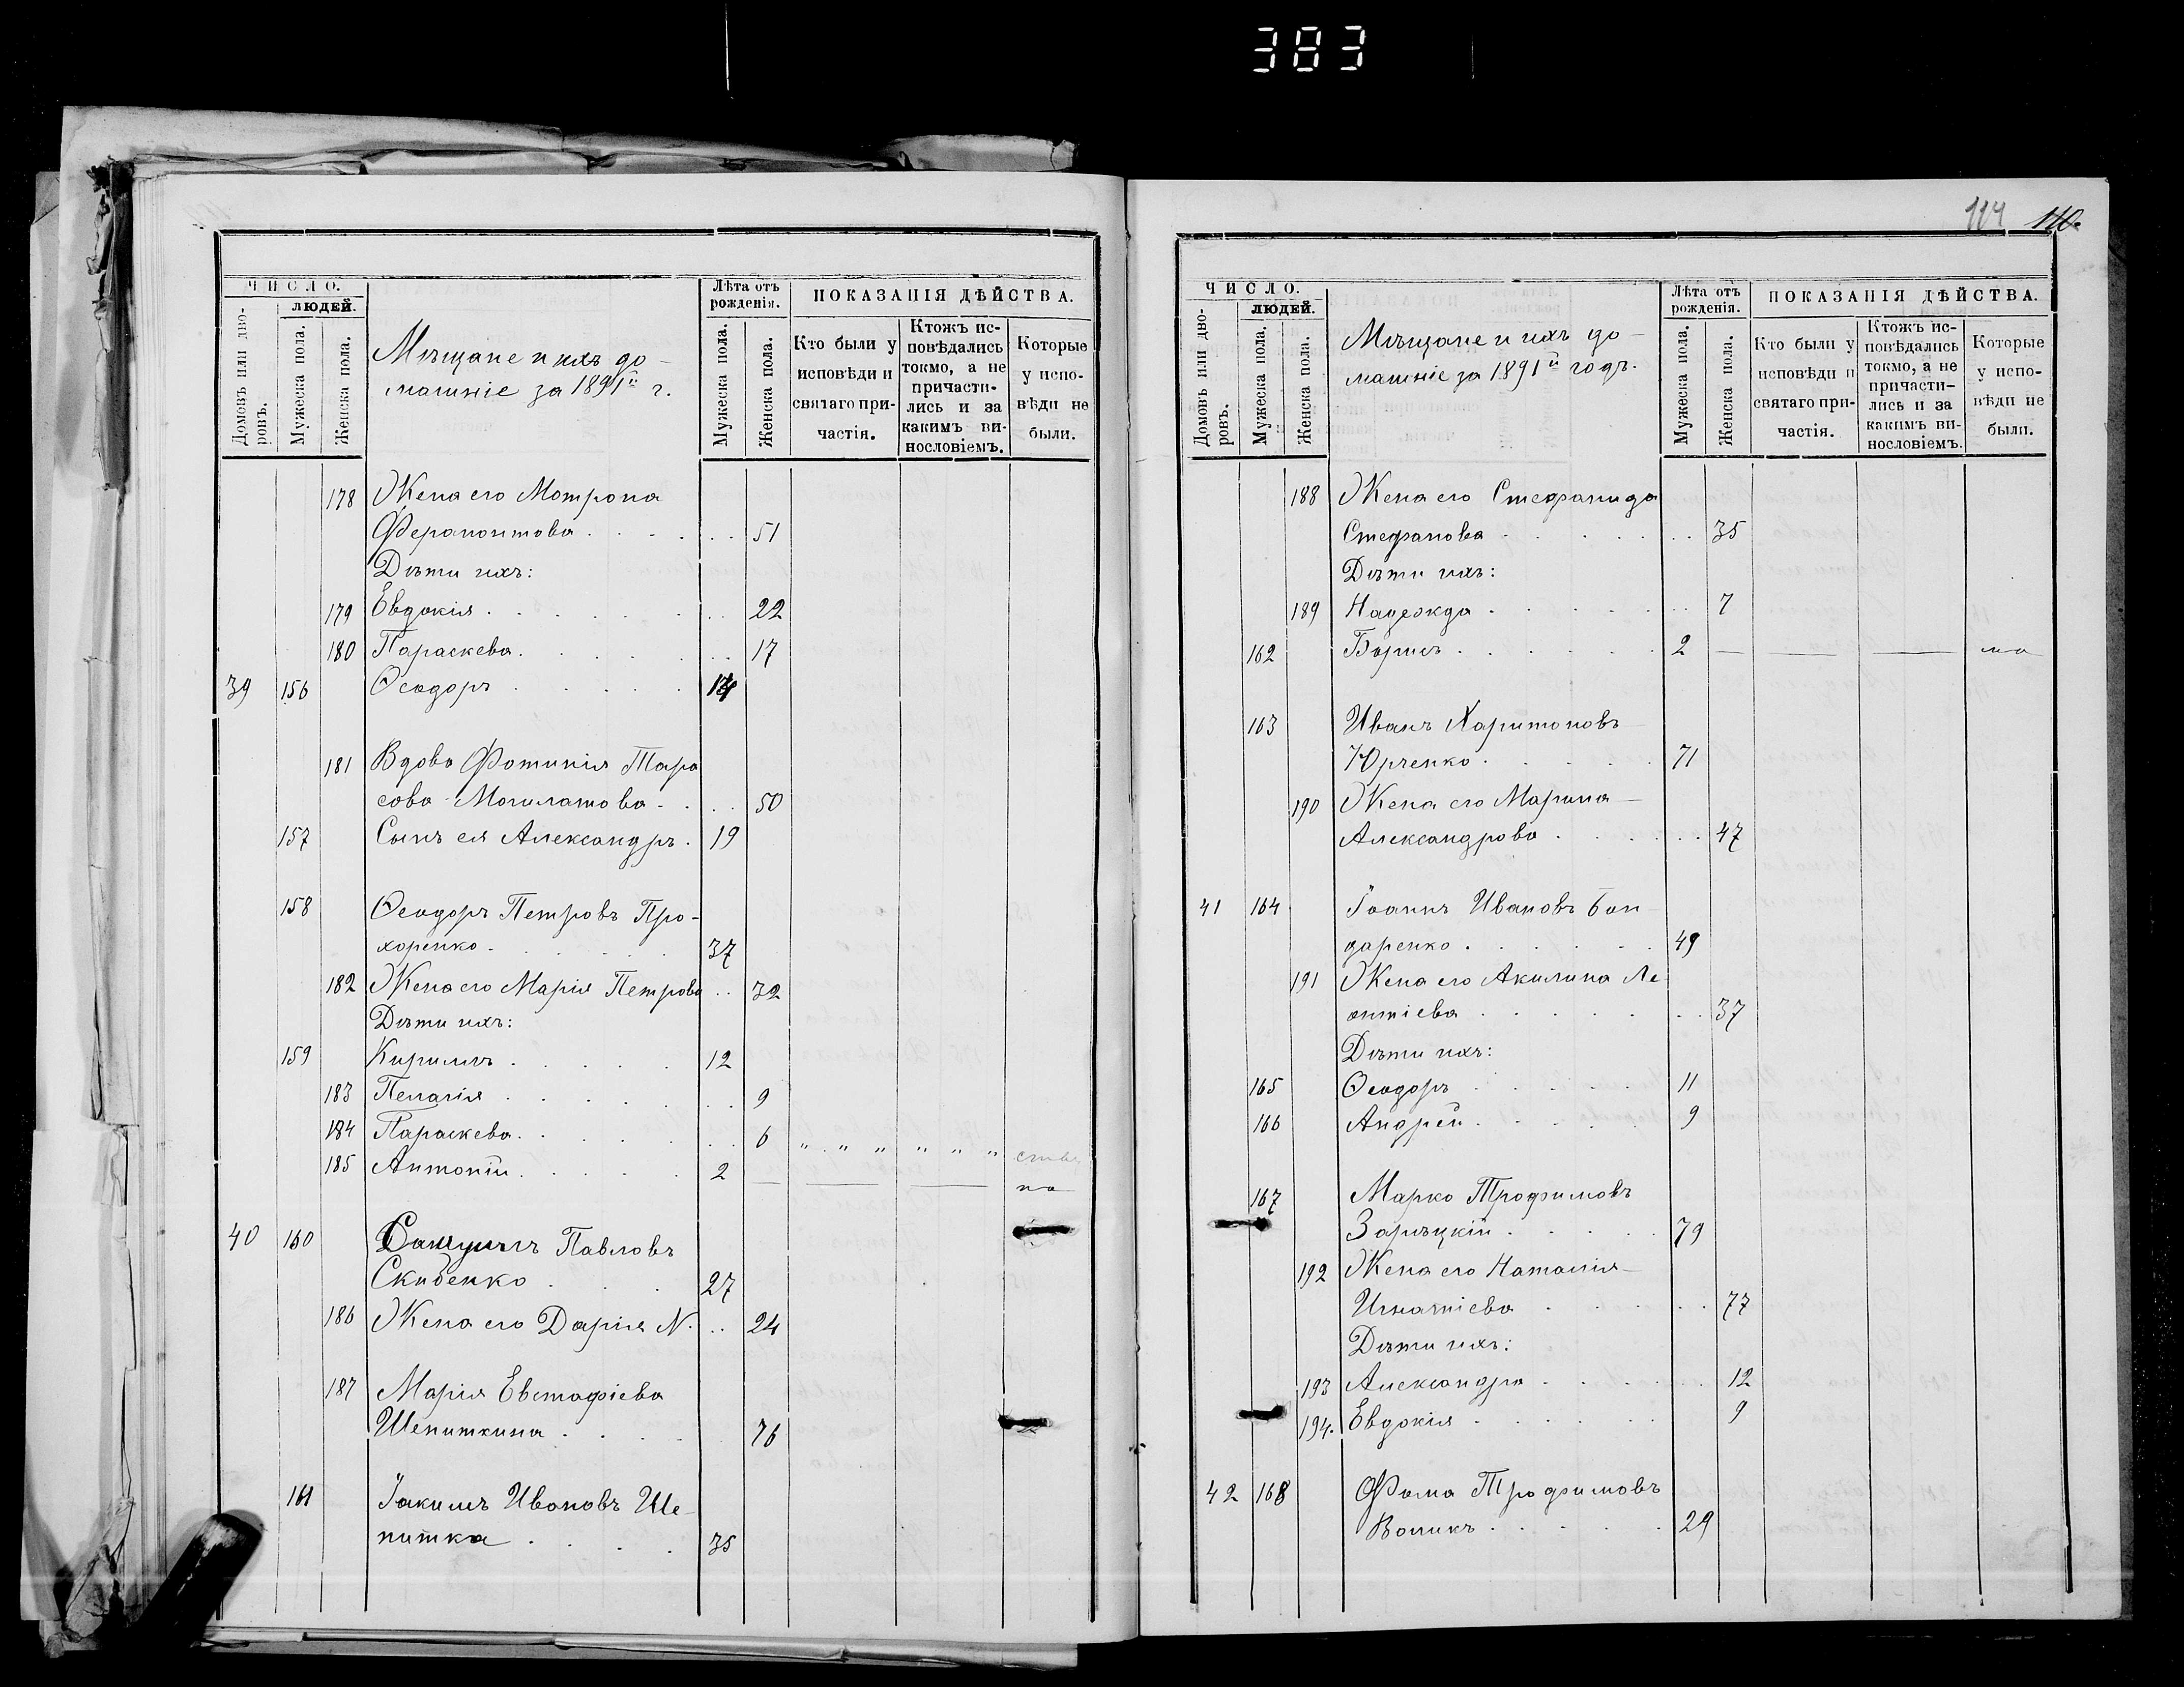 383
ЧИСЛО.
ЛЮДЕЙ.
Домовъ или дво-
ровъ.
Мужеска пола.
Женска пола.
Мѣщане и ихъ до-
машніе за 1891й г.
Лѣта отъ
рожденія.
Мужеска пола.
Женска пола.
ПОКАЗАНІЯ ДѢЙСТВА.
Кто были у
исповѣди и
святаго при-
частія.
Ктожъ ис-
повѣдались
токмо, а не
причасти-
лись и за
какимъ ви-
нословіемъ.
Которые
у испо-
вѣди не
были.
178 Жена его Мотрона
Ферапонтова . . . . . . 51
Дѣти ихъ:
179 Евдокія . . . . . . 22
180 Параскева . . . . . . 17
39 156 Ѳеодоръ . . . . .
181 Вдова Фотинія Тара
сова Могилатова . . . . 50
157 Сынъ ея Александръ . 19
158 Ѳеодоръ Петровъ Про-
хоренко . . . . . 37
182 Жена его Марія Петрова . . 32
Дѣти ихъ:
159 Кириллъ . . . . . 12
183 Пелагія . . . . . . 9
184 Параскева . . . . . . 6 „ „ „ „ „ „
185 Антоній . . . . . 2 — — — на
40 160 Самуилъ Павловъ
Скибенко . . . 27
186 Жена его Дарія N. . . 24
187 Марія Евстафіева
Шепиткина . . . . 76
161 Іакимъ Ивановъ Ше-
питка . . . . 35
114 110.
ЧИСЛО.
ЛЮДЕЙ.
Домовъ или дво-
ровъ.
Мужеска пола.
Женска пола.
Мѣщане и ихъ до-
машніе за 1891й годъ.
Лѣта отъ
рожденія.
Мужеска пола.
Женска пола.
ПОКАЗАНІЯ ДѢЙСТВА.
Кто были у
исповѣди и
святаго при-
частія.
Ктожъ ис-
повѣдались
токмо, а не
причасти-
лись и за
какимъ ви-
нословіемъ.
Которые
у испо-
вѣди не
были.
188 Жена его Стефанида
Стефанова . . . . . . 35
Дѣти ихъ:
189 Надежда . . . . . . 7
162 Борисъ . . . . . . 2 — — —
163 Иванъ Харитоновъ
Юрченко . . . . . 71
190 Жена его Марина
Александрова . . . . . 47
41 164 Іоаннъ Ивановъ Бон
даренко . . . . . . 49
191 Жена его Акилина Ле
онтіева . . . . . . 37
Дѣти ихъ:
165 Ѳеодоръ . . . . . 11
166 Андрей . . . . . 9
167 Марко Трофимовъ
Зарѣцкій . . . . . 79
192 Жена его Наталія
Игнатіева . . . . . 77
Дѣти ихъ:
193 Александра . . . . . 12
194. Евдокія . . . . . . 9
42 168 Фома Трофимовъ
Воликъ . . . . . 29